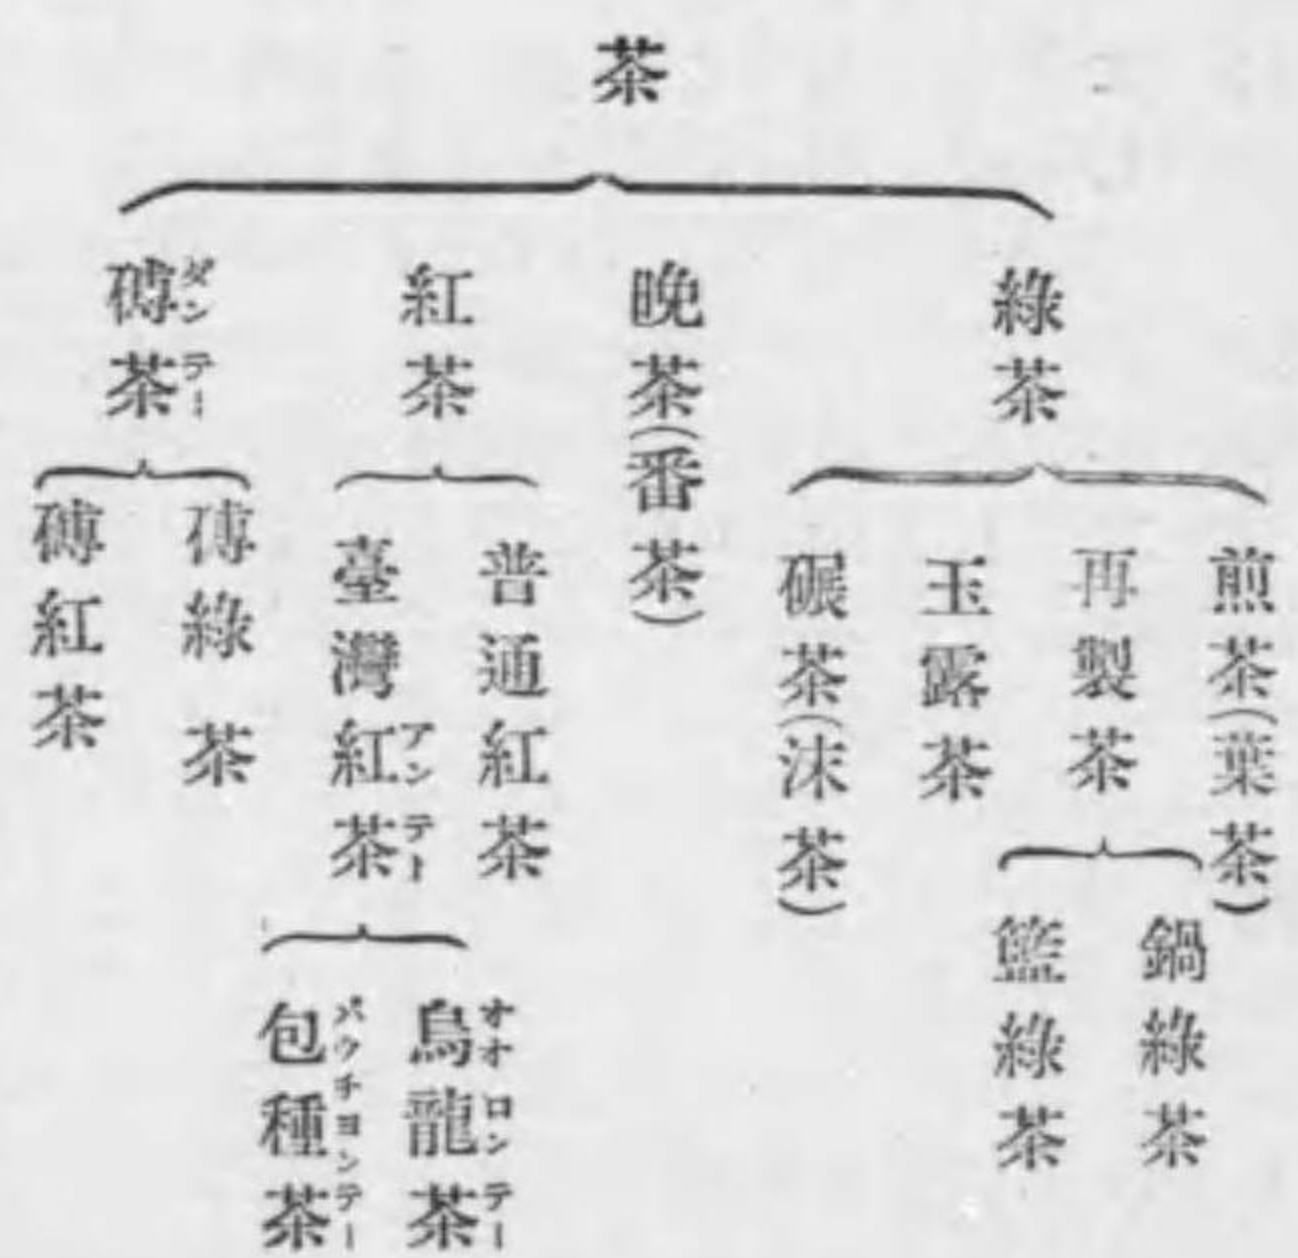 茶
綠茶
煎茶(葉茶)
再製茶
鍋綠茶
籃綠茶
玉露茶
碾茶(沫茶)
晩茶(番茶)
紅茶
普通紅茶
臺灣紅茶
アンテー
烏龍茶
オオロンテー
包種茶
パウチヨンテー
磚茶
タンテー
磚綠茶
磚紅茶